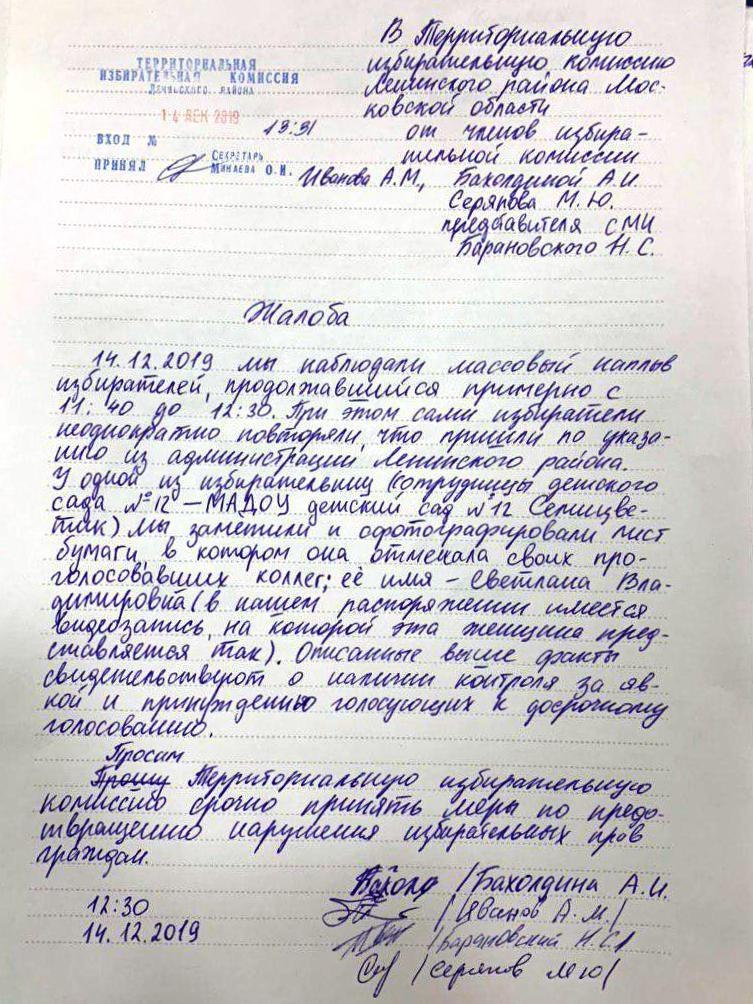 В Территориальную
избирательную комиссию
Ленинского района Мос-
ковской области
от членов избира-
тельной комиссии
Иванова А.М., Бахолдиной А.И.
Серяпова М.Ю.
представителя СМИ
Барановского Н.С.
ТЕРРИТОРИАЛЬНАЯ
ИЗБИРАТЕЛЬНАЯ КОМИССИЯ
ЛЕНИНСКОГО РАЙОНА
14 ДЕК 2019
13:31
ВХОД №
ПРИНЯЛ СЕКРЕТАРЬ
МИНАЕВА О.И.
Жалоба
14.12.2019 мы наблюдали массовый наплыв
избирателей, продолжавшийся примерно с
11:40 до 12:30. При этом сами избиратели
неоднократно повторяли, что пришли по указа-
нию из администрации Ленинского района.
У одной из избирательниц (сотрудницы детского
сада №12 – МАДОУ детский сад №12 Семицве-
тик) мы заметили и сфотографировали лист
бумаги, в котором она отмечала своих про-
голосовавших коллег; её имя – Светлана Вла-
димировна (в нашем распоряжении имеется
видеозапись, на которой эта женщина пред-
ставляется так). Описанные выше факты
свидетельствуют о наличии контроля за яв-
кой и принуждению голосующих к досрочному
голосованию.
Просим
Прошу Территориальную избирательную
комиссию срочно принять меры по предо-
твращению нарушения избирательных прав
граждан.
/Бахолдина А.И.
12:30 /Иванов А.М./
14.12.2019 /Барановский Н.С./
/Серяпов М.Ю/